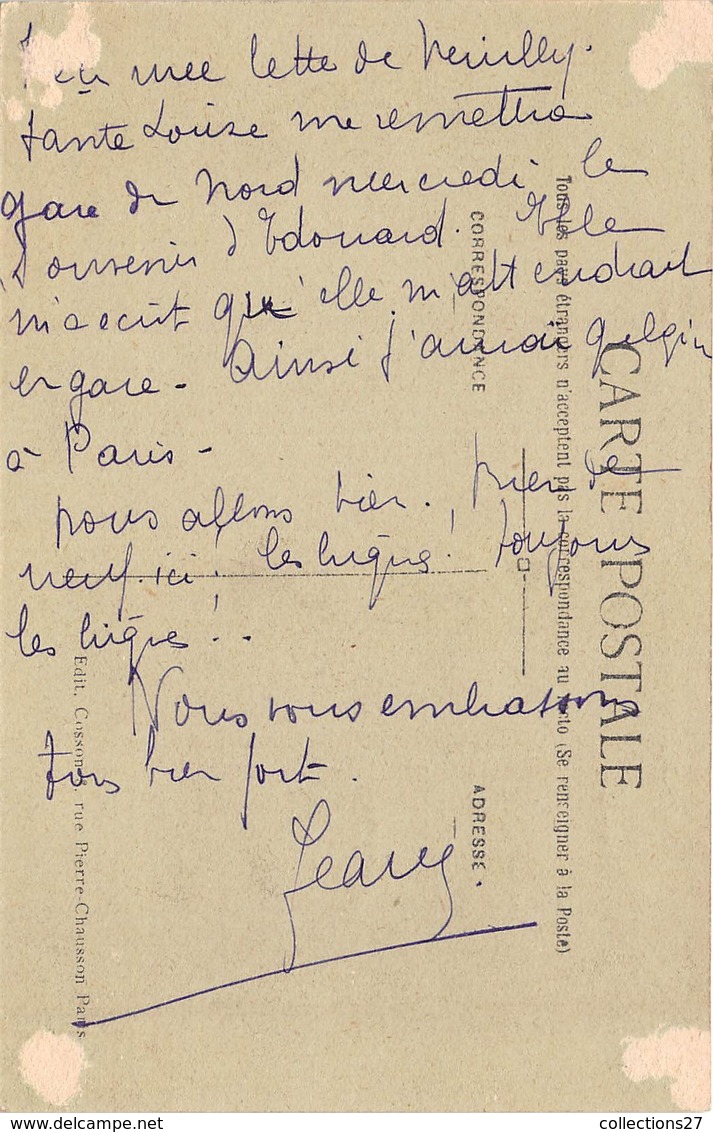 une lette de Neuilly.
tante Louise me remettra
gare du Nord mercredi le
souvenir d'Edouard. Elle
m'a ecrit qu'elle m'attendrait
en gare - Ainsi j'aurai
à Paris -
nous allons bien. rien de
neuf ici! les lugres! toujours
les lugres!..
Nous vous embrassons
tous bien fort.
CARTE POSTALE
Tous les pays étrangers n'acceptent pas la correspondance au recto (Se renseigner à la Poste)
CORRESPONDANCE
ADRESSE
Edit. Cosson, rue Pierre-Chausson Paris
collections27